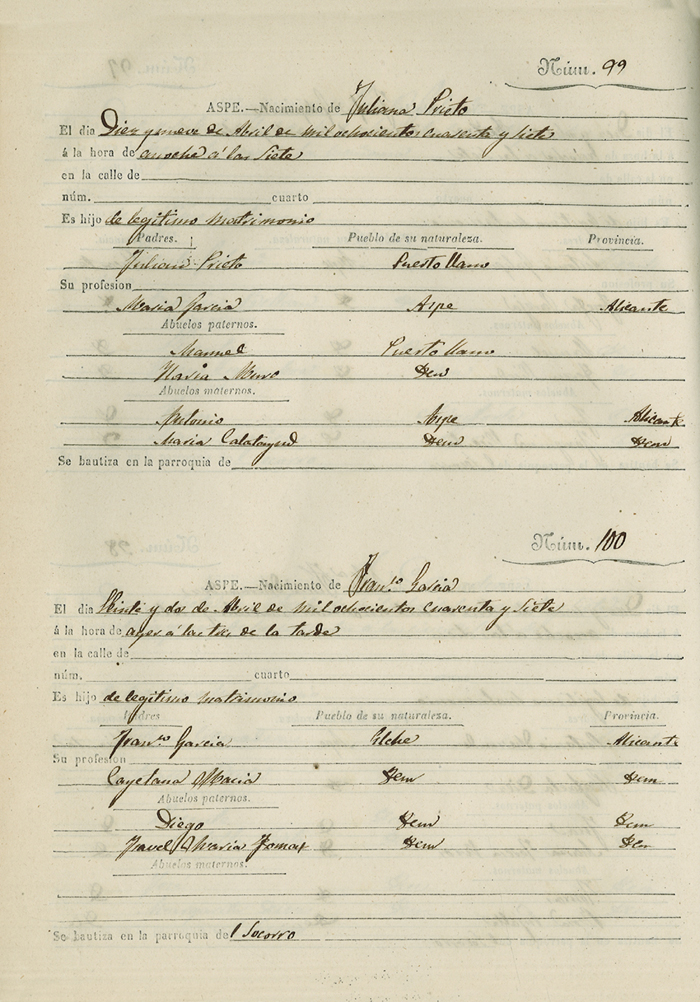 Núm. 99
ASPE.—Nacimiento de Juliana Prieto
El dia Diez y nueve de Abril de mil ochocientos cuarenta y siete
á la hora de anoche á las siete
en la calle de
núm. cuarto
Es hijo de legitimo matrimonio
Padres. Pueblo de su naturaleza. Provincia.
Julian Prieto Puerto llano
Su profesion
Maria Garcia Aspe Alicante
Abuelos paternos.
Manuel Puerto llano
Maria Idem
Abuelos maternos.
Antonio Aspe Alicante
Maria Calatayud Idem Idem
Se bautiza en la parroquia de
Núm. 100
ASPE.—Nacimiento de Fran.co Garcia
El dia Veinte y dos de Abril de mil ochocientos cuarenta y siete
á la hora de ayer á las tres de la tarde
en la calle de
núm. cuarto
Es hijo de legitimo matrimonio
Padres Pueblo de su naturaleza. Provincia.
Fran.co Garcia Elche Alicante
Su profesion
Cayetana Macia Idem Idem
Abuelos paternos.
Diego Idem Idem
Maria Idem Idem
Abuelos maternos.
Se bautiza en la parroquia del Socorro